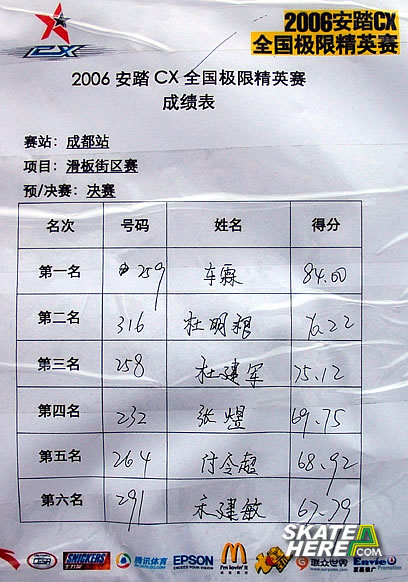 CX
2006安踏CX
全国极限精英赛
2006 安踏 CX 全国极限精英赛
成绩表
赛站：成都站
项目：滑板街区赛
预/决赛：决赛
名次 号码 姓名 得分
第一名 259 车霖 84.00
第二名 316 杜明根 76.22
第三名 258 杜建军 75.12
第四名 232 张煜 69.75
第五名 264 付令超 68.92
第六名 291 建敏 67.79
SKATE
HERE.COM
SNICKERS 腾讯体育 EPSON i'm lovin' it 联众世界 Envie